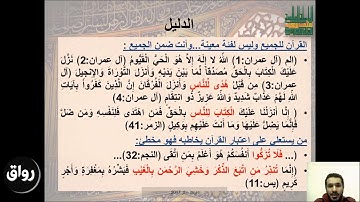 الدليل
القرآن للجميع وليس لفئة معينة...وأنت ضمن الجميع :
(الم (آل عمران:1) اللَّهُ لَا إِلَهَ إِلَّا هُوَ الْحَيُّ الْقَيُّومُ (آل عمران:2) نَزَّلَ
عَلَيْكَ الْكِتَابَ بِالْحَقِّ مُصَدِّقًا لِّمَا بَيْنَ يَدَيْهِ وَأَنزَلَ التَّوْرَاةَ وَالْإِنجِيلَ (آل
عمران:3) مِن قَبْلُ هُدًى لِّلنَّاسِ وَأَنزَلَ الْفُرْقَانَ إِنَّ الَّذِينَ كَفَرُوا بِآيَاتِ
اللَّهِ لَهُمْ عَذَابٌ شَدِيدٌ وَاللَّهُ عَزِيزٌ ذُو انتِقَامٍ (آل عمران:4)
(إِنَّا أَنزَلْنَا عَلَيْكَ الْكِتَابَ لِلنَّاسِ بِالْحَقِّ فَمَنِ اهْتَدَى فَلِنَفْسِهِ وَمَن ضَلَّ
فَإِنَّمَا يَضِلُّ عَلَيْهَا وَمَا أَنتَ عَلَيْهِم بِوَكِيلٍ (الزمر:41)
من يستعلي على اعتبار القرآن يخاطبه فهو مخطئ:
(... فَلَا تُزَكُّوا أَنفُسَكُمْ هُوَ أَعْلَمُ بِمَنِ اتَّقَى (النجم:32)...
(إِنَّمَا تُنذِرُ مَنِ اتَّبَعَ الذِّكْرَ وَخَشِيَ الرَّحْمَن بِالْغَيْبِ فَبَشِّرْهُ بِمَغْفِرَةٍ وَأَجْرٍ
كَرِيمٍ (يس:11)
رواق
رواق